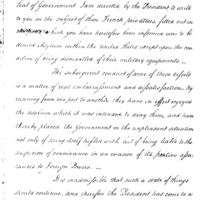 seat of Government I am directed by the President to write
to you on the subject of those French privateers fitted out in
which you have heretofore been informed were to be
denied Asylum within the United States except upon the con
dition of being dismantled of their military equipments.
The subsequent conduct of some of these vessels
is a matter of real embarrassment and dissatisfaction. By
running from one port to another they have in effect enjoyed
the asylum which it was intended to deny them, and have
thereby placed the Government in the unpleasant situation
not only of being itself trifled with but of being liable to the
suspicion of connivance in an evasion of its positive assu
rances to Foreign Powers.
It is inadmissible that such a state of things
should continue, and therefore the President has come to a